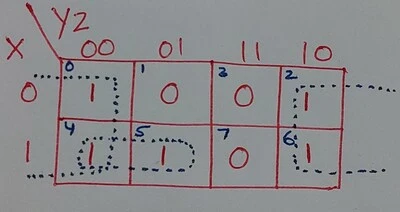 YZ
X 00 01 11 10
0 1 3 2
0 1 0 0 1
4 5 7 6
1 1 1 0 1